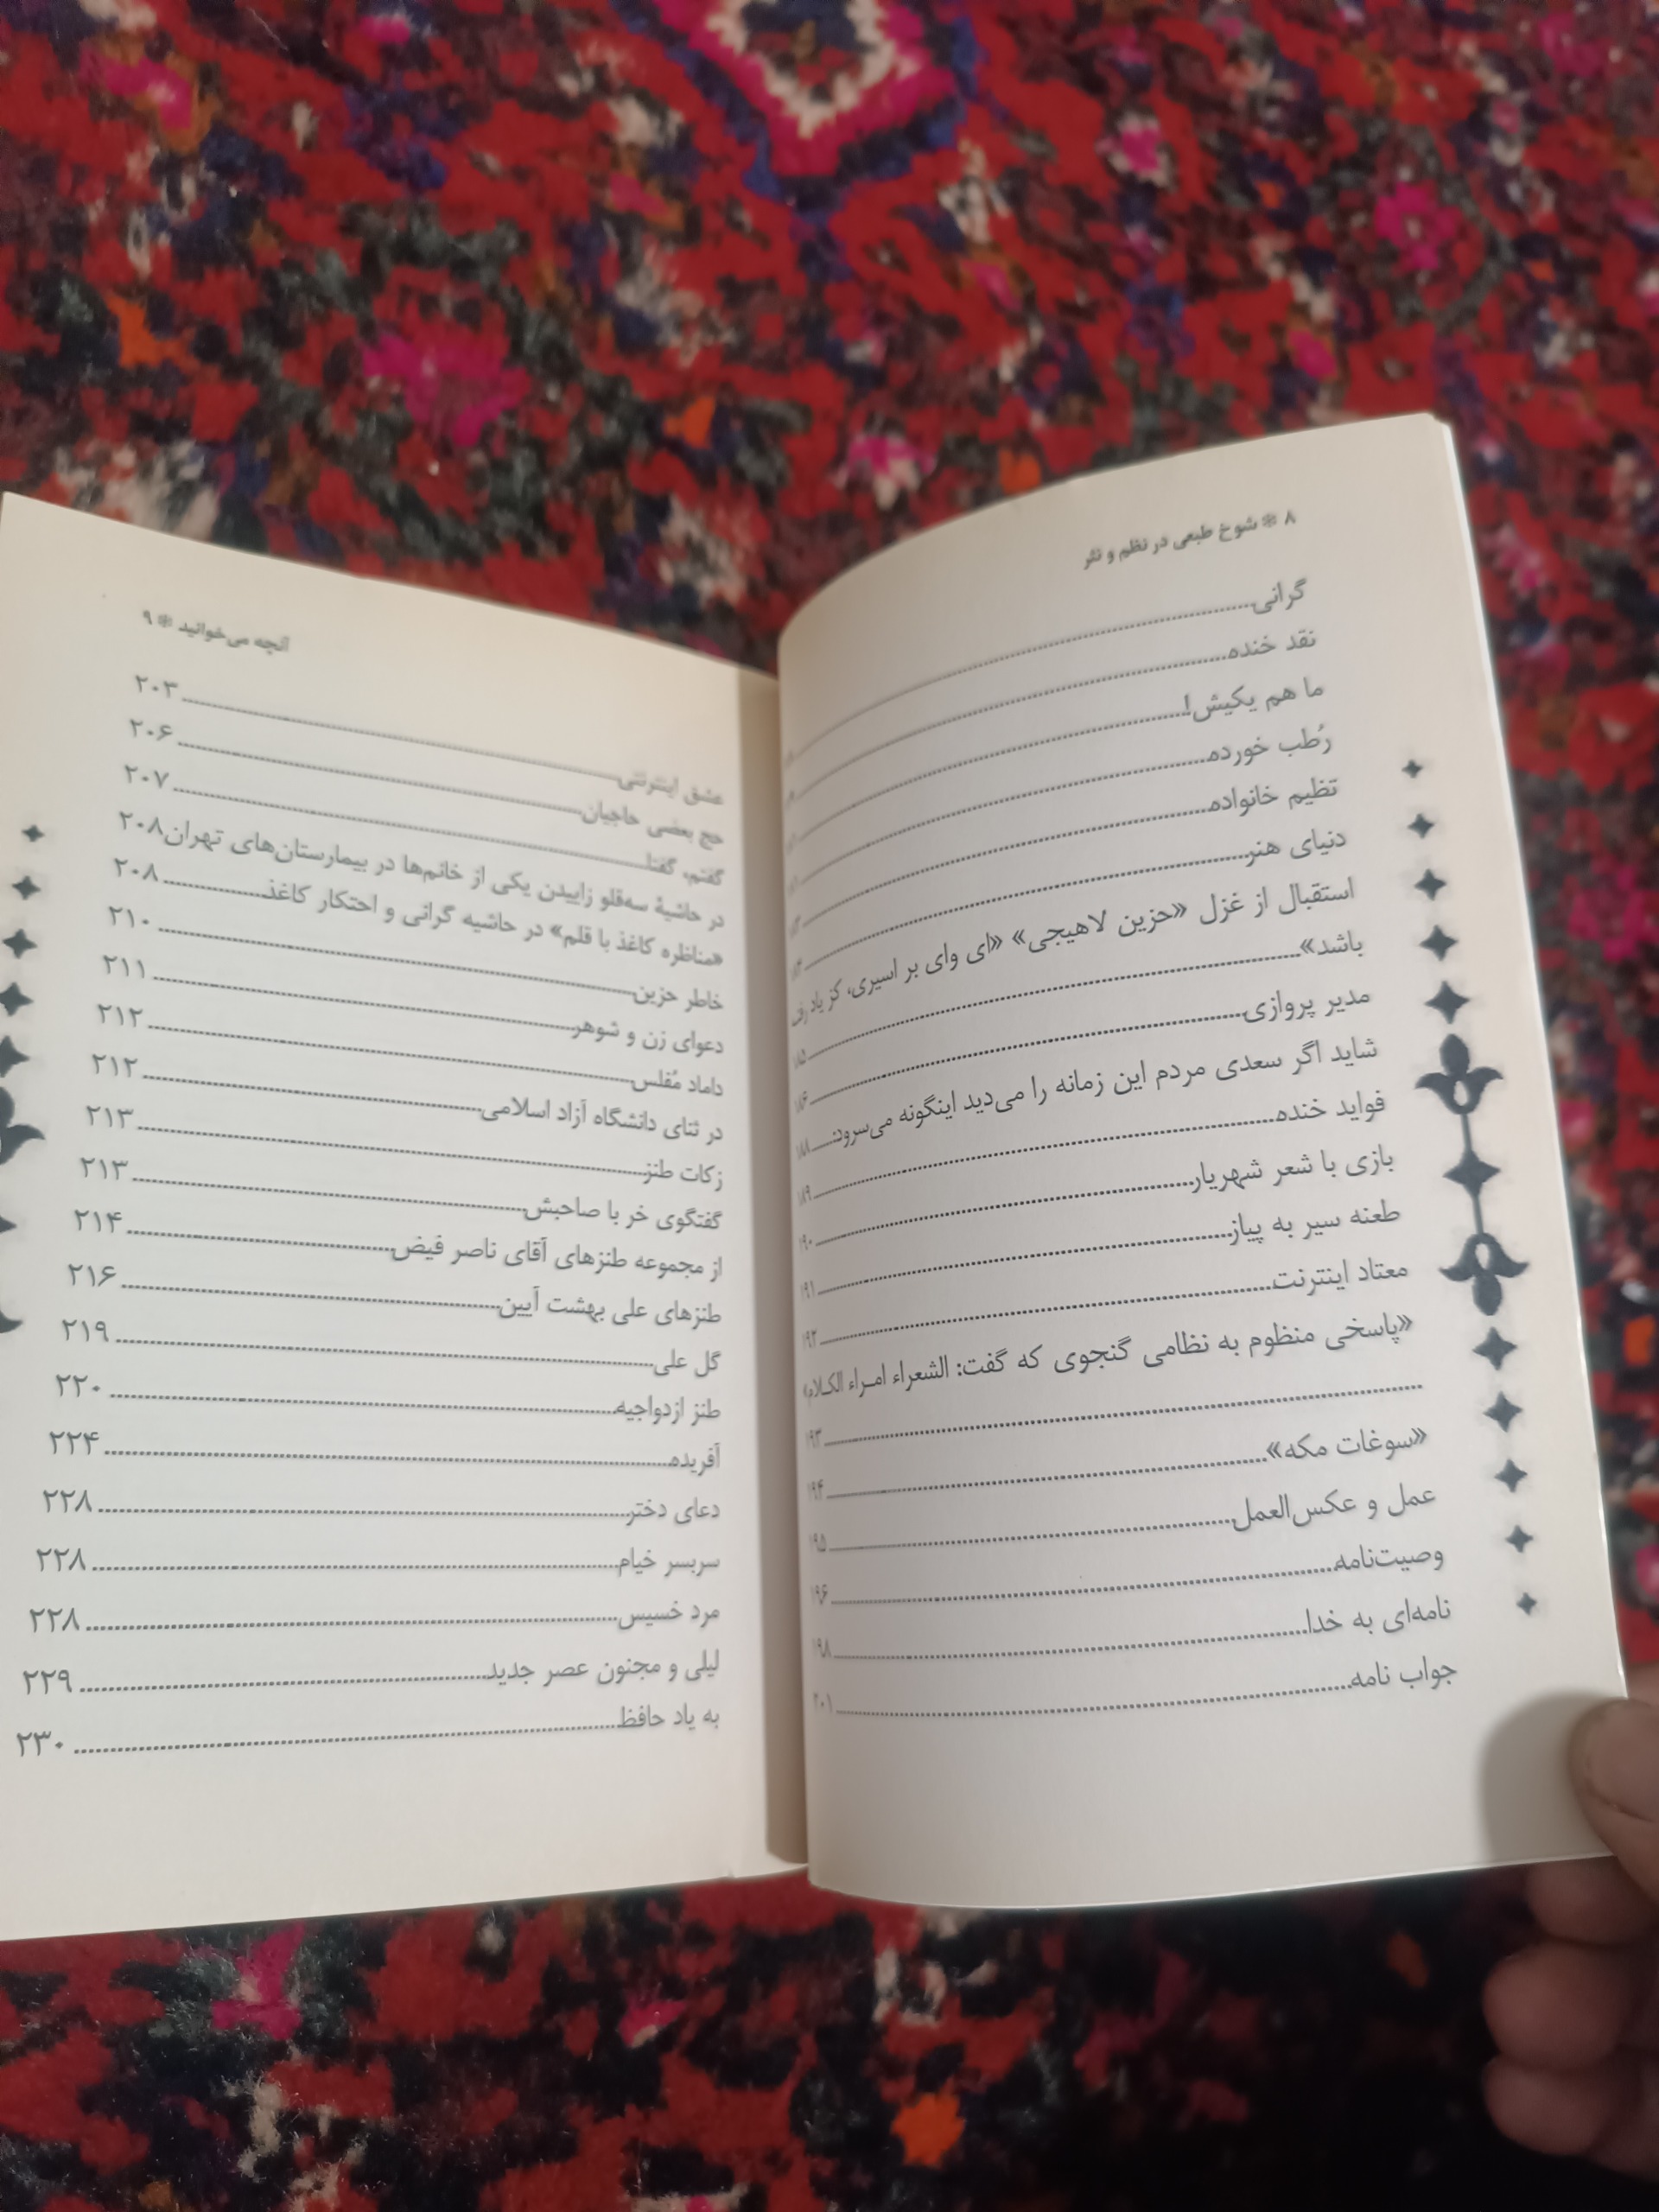 ۸ * شوخ طبعی در نظم و نثر
گرانی
نقد خنده
ما هم یکیش!
رُطب خورده
تنظیم خانواده
دنیای هنر
استقبال از غزل «حزین لاهیجی» «ای وای بر اسیری، کز یاد
باشد»..........۱۸۵
مدیر پروازی..........۱۸۶
شاید اگر سعدی مردم این زمانه را می‌دید اینگونه می‌سرود:..........۱۸۸
فواید خنده..........۱۸۹
بازی با شعر شهریار..........۱۹۰
طعنه سیر به پیاز..........۱۹۱
معتاد اینترنت..........۱۹۲
«پاسخی منظوم به نظامی گنجوی که گفت: الشعراء امراء الکلام»
..........۱۹۳
«سوغات مکه»..........۱۹۴
عمل و عکس‌العمل..........۱۹۵
وصیت‌نامه..........۱۹۶
نامه‌ای به خدا..........۱۹۸
جواب نامه..........۲۰۱
آنچه می‌خوانید * ۹
عشق اینترنتی..........۲۰۳
حج بعضی حاجیان..........۲۰۶
گفتم، گفتا..........۲۰۷
در حاشیهٔ سه‌قلو زاییدن یکی از خانم‌ها در بیمارستان‌های تهران ۲۰۸
«مناظره کاغذ با قلم» در حاشیه گرانی و احتکار کاغذ..........۲۰۸
خاطر حزین..........۲۱۰
دعوای زن و شوهر..........۲۱۱
داماد مُفلس..........۲۱۲
در ثنای دانشگاه آزاد اسلامی..........۲۱۲
زکات طنز..........۲۱۳
گفتگوی خر با صاحبش..........۲۱۳
از مجموعه طنزهای آقای ناصر فیض..........۲۱۴
طنزهای علی بهشت آیین..........۲۱۶
گل علی..........۲۱۹
طنز ازدواجیه..........۲۲۰
آفریده..........۲۲۴
دعای دختر..........۲۲۸
سربسر خیام..........۲۲۸
مرد خسیس..........۲۲۸
لیلی و مجنون عصر جدید..........۲۲۹
به یاد حافظ..........۲۳۰